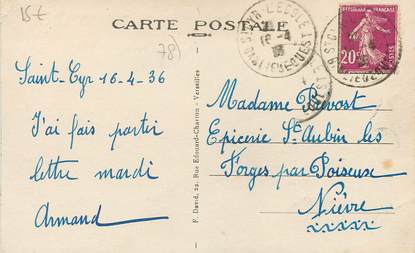 15€
CARTE POSTALE
78)
ST CYR L'ECOLE
16-4
36
POSTES
20c
Saint-Cyr 16-4-36
J'ai fais partir
lettre mardi
Armand
F. David, 22, Rue Edouard-Charton - Versailles
Madame Prevost
Epicerie St Aubin les
Forges par Poiseux
Nièvre
xxxxx